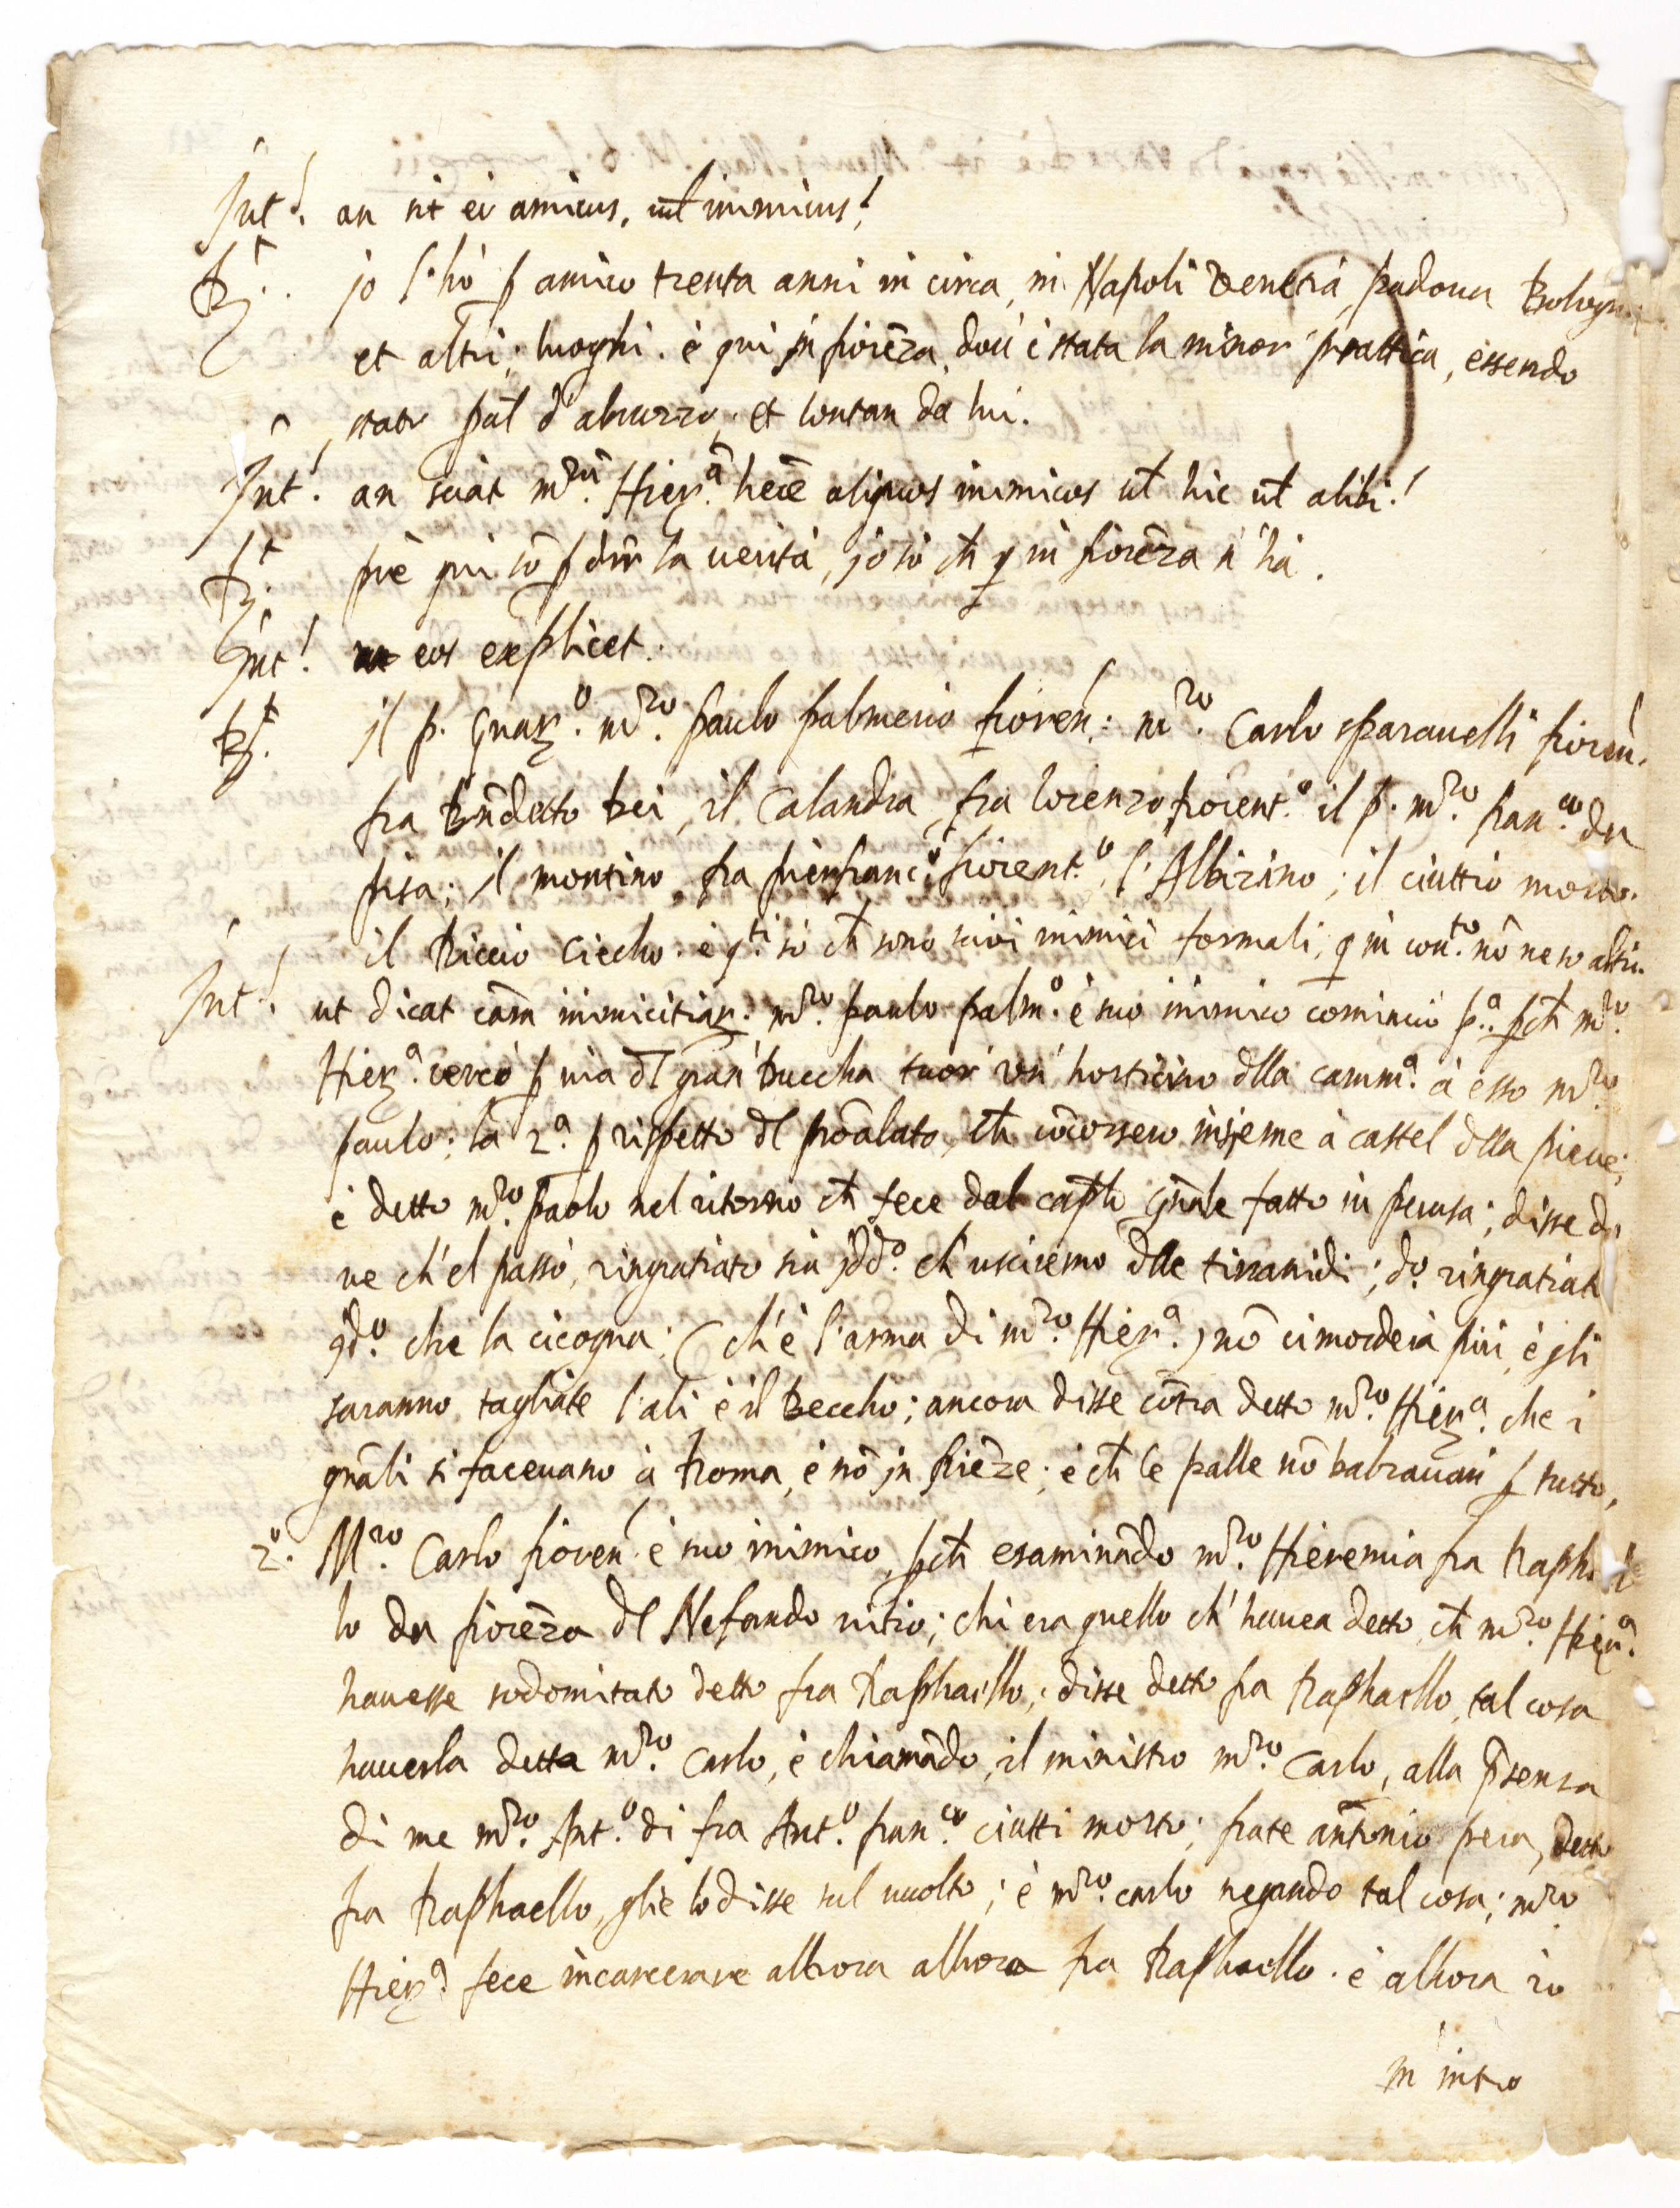 Int.! an sit ei amicus, ul' inimicus!
R.t jo l'hò p amico trenta anni in circa, in Napoli Venetia, padoua Bologn
et altri luoghi. è qui jn fiorēza, dou' è stata la minor prattica, essendo
stato pal d'abruzzo, et lontan da lui.
Int.! an sciat m.ru Hier.a hēre aliquos inimicos ul' hic ul' alibi!
R.t pchè qui sō p dir la verità, jo sò ch' q in fiorēza n'hà.
Int! eos explicet.
R.t jl p. Guar.o m.ro paulo palmerio fioren: m.ro Carlo sparauelli fioren.
fra Bñdetto bei, il Calandra, fra lorenzo fiorent.o il p. m.ro fran.co da
pisa; il montino, fra pierfranc.o fiorent.o, l'Albizino; il ciuttio morto.
il Riccio Ciecho. è q.ti sò ch' sono suoi inimici formali, q in con.to nō ne so altri.
Int! ut dicat cām inimicitiar. m.ro paulo palm.o è suo inimico cominciò p.a pch' m.ro
Hier.a cercò p uia dl gran Buccha tuor' un' horticino dlla camm.a à esso m.ro
paulo; la 2.a p rispetto dl prōalato, ch' cōcorsero insieme à castel dlla pieue;
è detto m.ro paolo nel ritorno ch' fece dal caplo gñale fatto in perusa; disse do
ue ch'el passò, ringratiato sia jdd.o ch' usciremo dlle tirranidi; do. ringratiato
jd.o che la cicogna; (ch'è l'arma di m.ro Hier.a) nō ci morderà più, è gli
saranno tagliate l'ali è il Beccho; ancora disse cōtra detto m.ro Hier.a che i
gñali si faceuano à Roma, è nō jn fiēze; è ch' le palle nō balzauan p tutto,
2.o M.ro Carlo fioren è suo inimico, pch' esaminādo m.ro Hieremia fra Raphael
lo da fiorēza dl Nefando uitio; chi era quello ch' hauea detto, ch' m.ro Hier.a
hauesse sodomitato detto fra Raphaello; disse detto fra Raphaello, tal cosa
hauerla detta m.ro Carlo, è chiamādo, il ministro m.ro Carlo, alla p̄senza
di me m.ro Ant.o di fra Ant.o fran.co ciutti morto; frate antonio pera, detto
fra Raphaello, glie lo disse sul uuolto; è m.ro carlo negando tal cosa; m.ro
Hier.a fece incarcerare alhora alhora fra Raphaello. è alhora io
m' intro